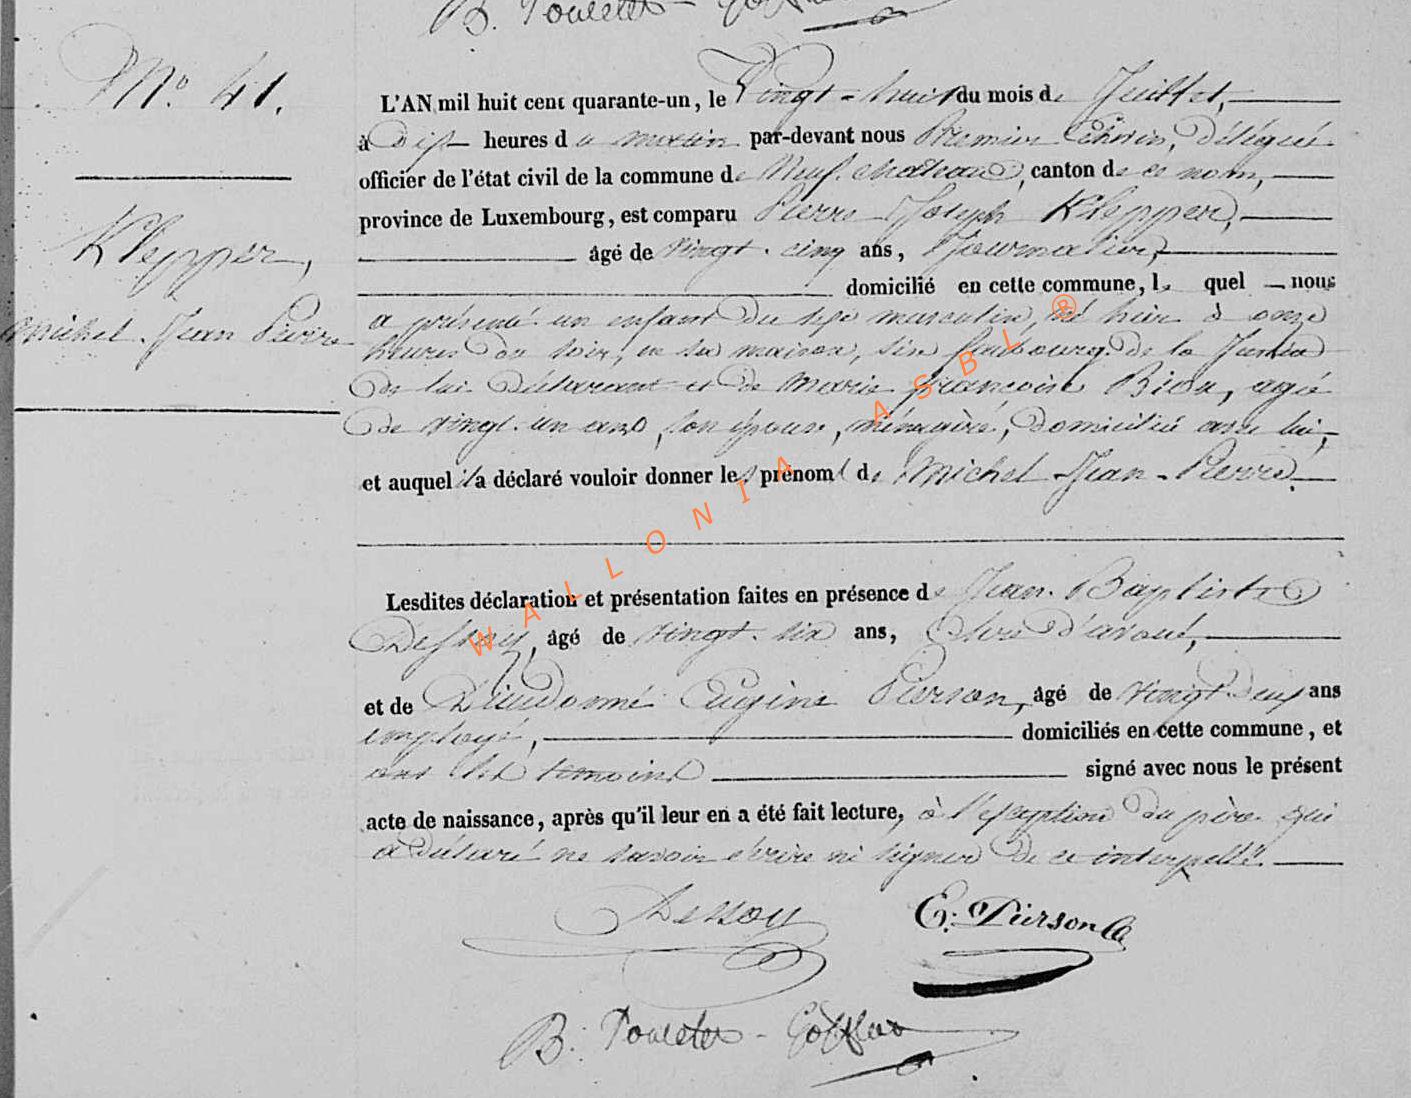 B. Poncelet - Goffi
N.º 41.
Klepper,
Michel-Jean Pierre
L'AN mil huit cent quarante-un, le Vingt-huit du mois de Juillet,
à Dix heures du matin par-devant nous Premier Echevin, Délégué
officier de l'état civil de la commune de Neufchateau, canton de ce nom,
province de Luxembourg, est comparu Pierre Joseph Klepper,
âgé de vingt-cinq ans, Journalier,
domicilié en cette commune, le quel nous
a présenté un enfant du sexe masculin, né hier à onze
heures du soir, en sa maison, sise faubourg de la
de lui déclarant et de Marie françoise agée
de vingt-un ans, son épouse, ménagère, domiciliée avec lui,
et auquel il a déclaré vouloir donner les prénoms de Michel-Jean-Pierre.
Lesdites déclaration et présentation faites en présence de Jean-Baptiste
Dessoy, âgé de vingt-six ans, Clerc d'avoué,
et de Dieudonné Eugène Pierson, âgé de vingt-deux ans
employé, domiciliés en cette commune, et
ont les témoins signé avec nous le présent
acte de naissance, après qu'il leur en a été fait lecture, à l'exception du père qui
a déclaré ne savoir écrire ni signer de ce interpellé.
Dessoy
E. Pierson
B. Poncelet - Goffi
WALLONIA ASBL ®